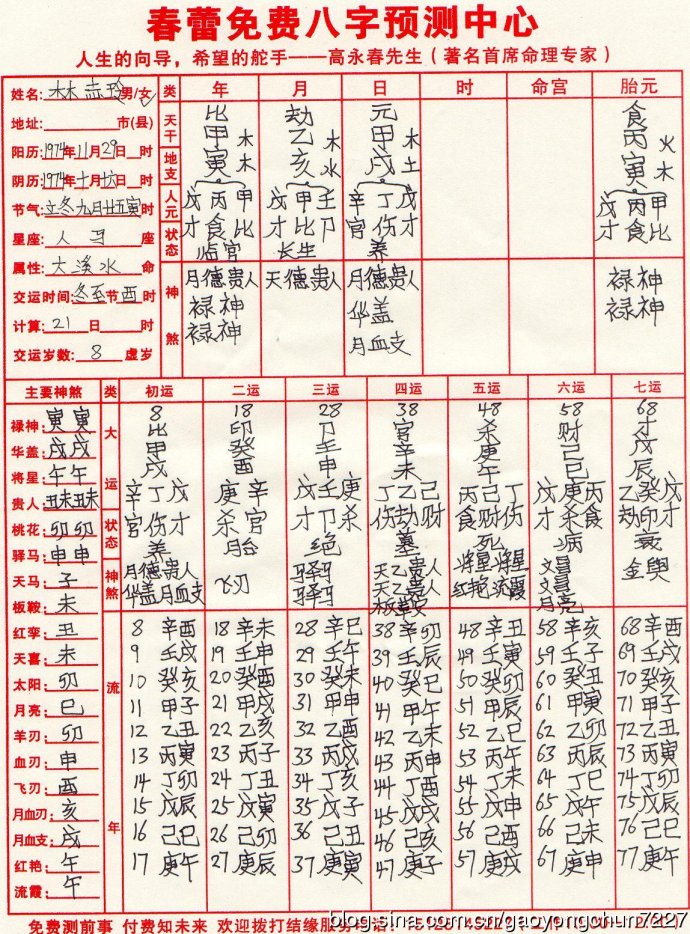 春蕾免费八字预测中心
人生的向导，希望的舵手——高永春先生（著名首席命理专家）
姓名: 林 志玲 男/女 类 年 月 日 时 命宫 胎元
地址: 市(县)
阳历: 1974年11月29日 时
阴历: 1974年十月十六日 时
节气: 立冬九月廿五寅时
星座: 人马 座
属性: 大溪水 命
交运时间: 冬至节酉时
计算: 21 日 时
交运岁数: 8 虚岁
天干 比 劫 元 食
甲木 乙木 甲木 丙火
地支 寅木 亥水 戌土 寅木
人元 戊丙甲 戊甲壬 辛丁戊 戊丙甲
才食比 才比卩 官伤才 才食比
状态 临官 长生 养
神煞 月德贵人 天德贵人 月德贵人 禄神
禄神 华盖 禄神
禄神 月血支
主要神煞 类 初运 二运 三运 四运 五运 六运 七运
禄神: 寅寅
华盖: 戌戌
将星: 午午
贵人: 丑未丑未
桃花: 卯卯
驿马: 申申
天马: 子
板鞍: 未
红孪: 丑
天喜: 未
太阳: 卯
月亮: 巳
羊刃: 卯
血刃: 申
飞刃: 酉
月血刃: 亥
月血支: 戌
红艳: 午
流霞: 午
大运 8 18 28 38 48 58 68
比 印 卩 官 杀 财 才
甲 癸 壬 辛 庚 己 戊
戌 酉 申 未 午 巳 辰
辛丁戊 庚辛 戊壬庚 丁乙己 丙己丁 戊庚丙 乙癸戊
官伤才 杀官 才卩杀 伤劫财 食财伤 才杀食 劫印才
状态 养 胎 绝 墓 死 病 衰
神煞 月德贵人 飞刃 驿马 天乙贵人 将星将星 文昌 金舆
华盖月血支 驿马 天乙贵人 红艳流霞 文昌
月亮
流年
8 辛酉 18 辛未 28 辛巳 38 辛卯 48 辛丑 58 辛亥 68 辛酉
9 壬戌 19 壬申 29 壬午 39 壬辰 49 壬寅 59 壬子 69 壬戌
10 癸亥 20 癸酉 30 癸未 40 癸巳 50 癸卯 60 癸丑 70 癸亥
11 甲子 21 甲戌 31 甲申 41 甲午 51 甲辰 61 甲寅 71 甲子
12 乙丑 22 乙亥 32 乙酉 42 乙未 52 乙巳 62 乙卯 72 乙丑
13 丙寅 23 丙子 33 丙戌 43 丙申 53 丙午 63 丙辰 73 丙寅
14 丁卯 24 丁丑 34 丁亥 44 丁酉 54 丁未 64 丁巳 74 丁卯
15 戊辰 25 戊寅 35 戊子 45 戊戌 55 戊申 65 戊午 75 戊辰
16 己巳 26 己卯 36 己丑 46 己亥 56 己酉 66 己未 76 己巳
17 庚午 27 庚辰 37 庚寅 47 庚子 57 庚戌 67 庚申 77 庚午
免费测前事 付费知未来 欢迎拨打结缘服务
blog.sina.com.cn/gaoyongchun7227